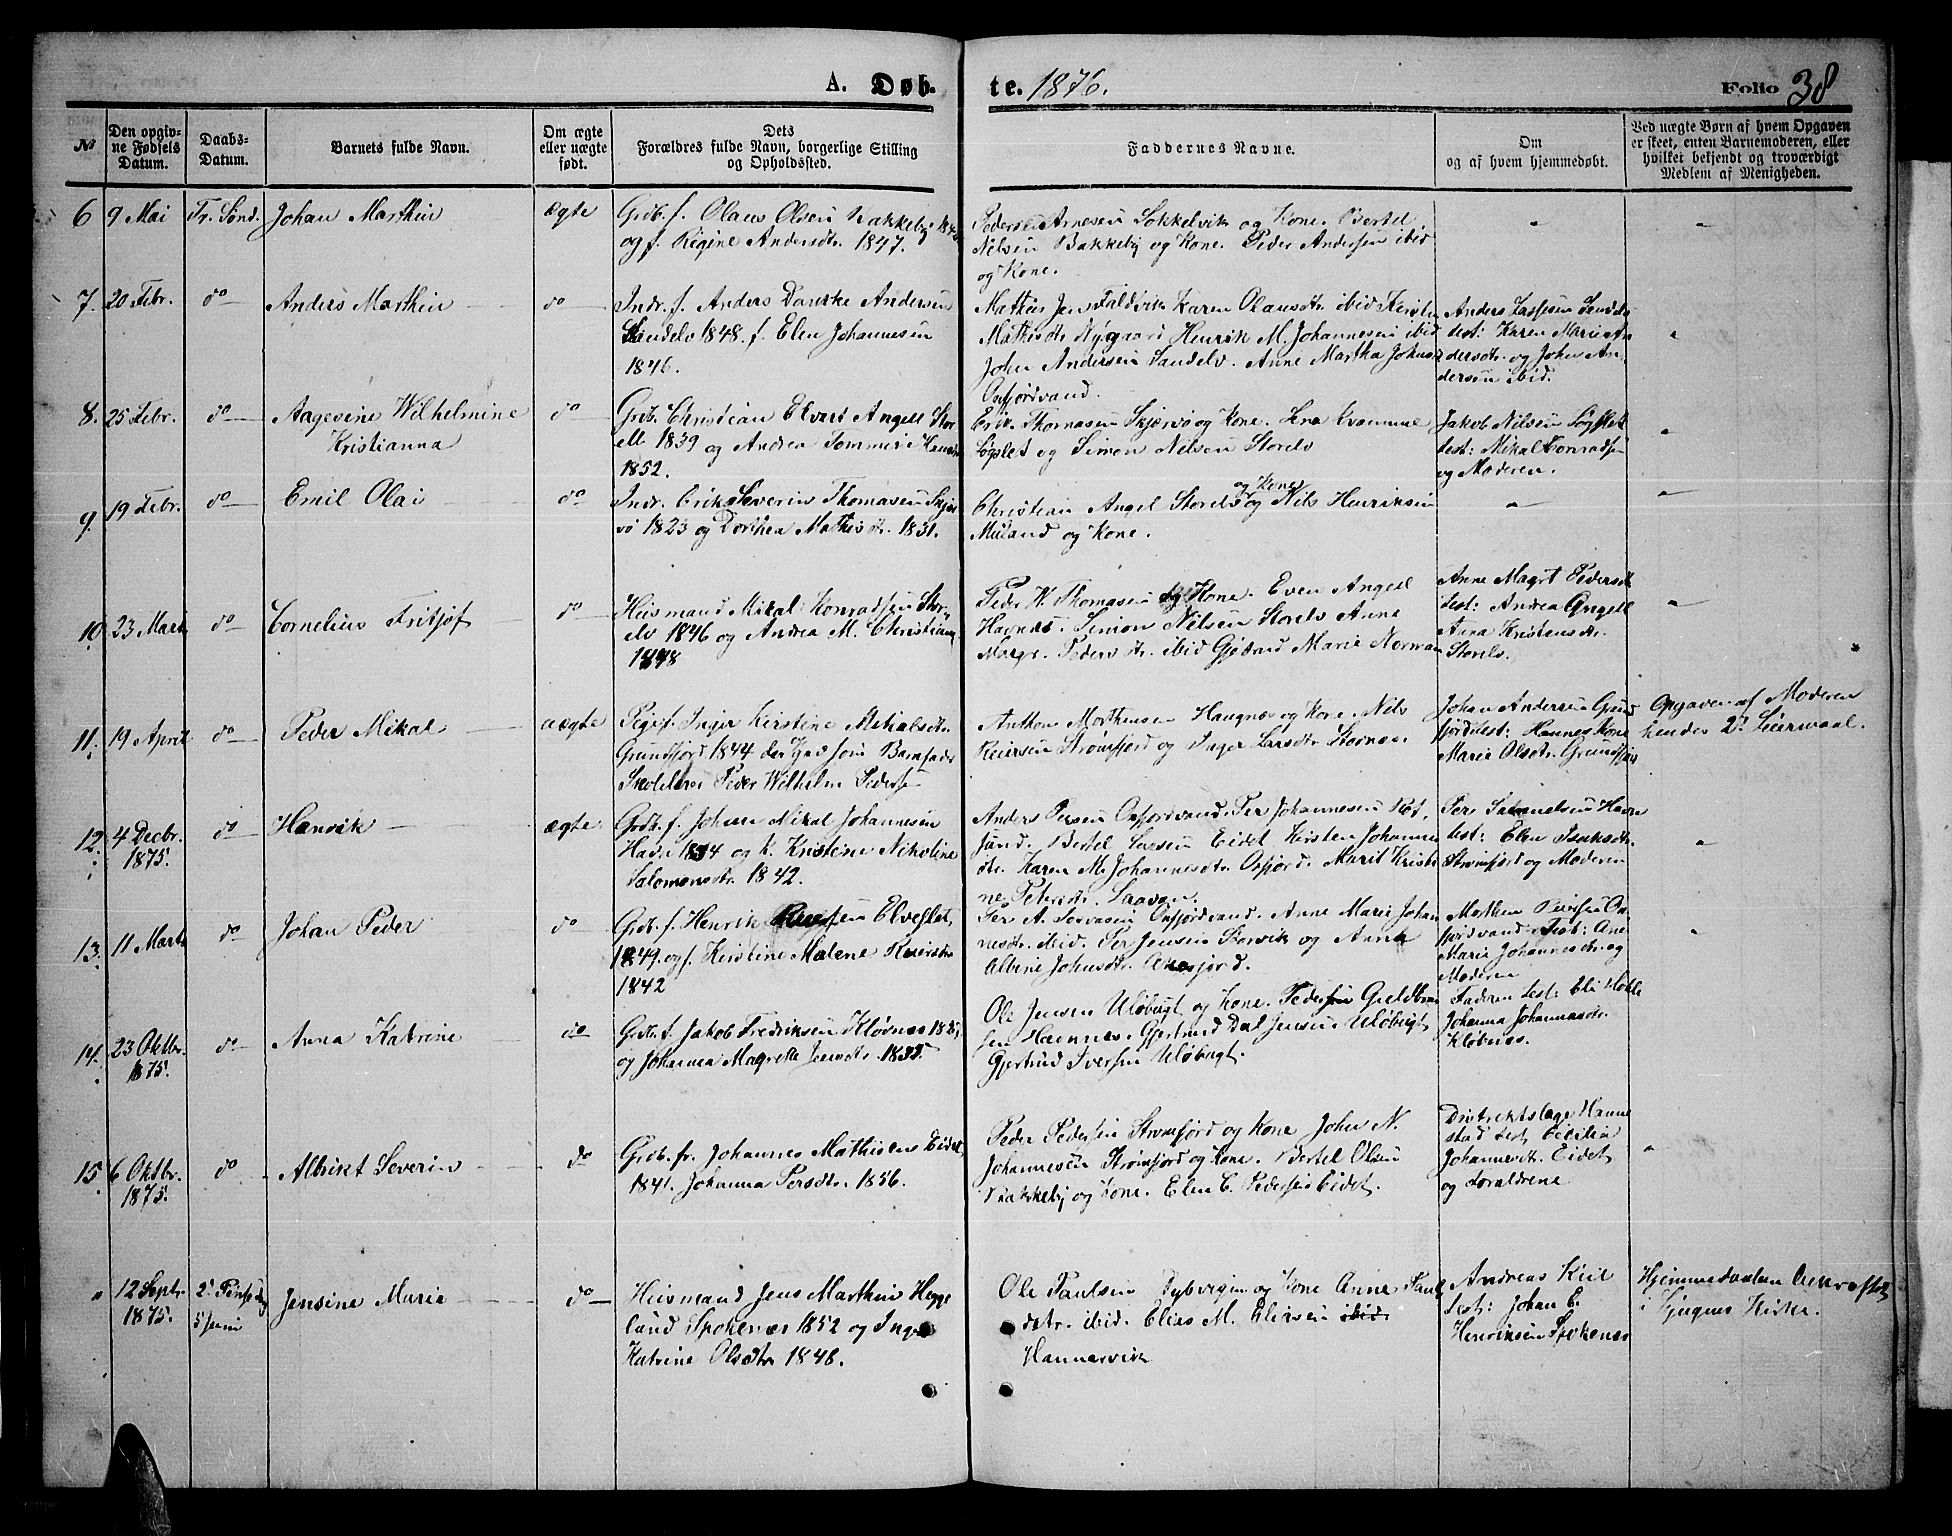 A. Døbte. 1876.
Folio 38
№
Den opgivne Fødsels Datum.
Daabs-Datum.
Barnets fulde Navn.
Om ægte eller uægte født.
Dets Forældres fulde Navn, borgerlige Stilling og Opholdssted.
Faddernes Navne.
Om og af hvem hjemmedøbt.
Ved uægte Børn af hvem Opgaven er skeet, enten Barnemoderen, eller hvilket bekjendt og troværdigt Medlem af Menigheden.
6 9 Mai Tr. Sönd. Johan Marthin ægte
Grdb. f. Olaus Olsen Bakkeby
og f. Regine Andersdtr. 1847.
Arnesen Sokkelvik og Kone. Bertel
Nilsen Bakkeby og Kone. Peder Andersen ibid
og Kone.
7. 20 Febr. do Anders Marthin do
Indr. f. Anders Danske Andersen
Sandelv 1848. f. Elen Johannesen
1846.
Mathis Jens Faldvik Karen Olausdtr. ibid Kirsten
Mathisdtr Nygaard Henrik M. Johannesen ibid
John Andersen Sandelv. Anne Martha Johns
Oxfjordvand.
Anders Lassesen
test: Karen Marie An
dersdtr. og John An
dersen ibid.
8. 25 Febr. do Aagevine Wilhelmine
Kristianna do
Grdb. Christian Ekvart Angell Stor
elv 1839 og Andrea Tommine
1852.
Erik Thomasen Skjærvö og Kone. Lene
Sögslet og Simon Nilsen Storelv
Jakob Nilsen
test: Mikal Conradsen
og Moderen.
9. 19 Febr. do Emil Olai do
Indr. Erik Severin Thomasen Skjær
vö 1823 og Dorthea Mathisdtr. 1831.
Christian Angel Storelv og Kone og Nils Henriksen
Meiland og Kone.
10. 23 Marts do Cornelius Fritjof do
Huusmand Mikal Konradsen Stor
elv 1846 og Andrea M. Christians
1848
Peder W. Thomasen og Kone. Even Angell
Havnes. Simon Nilsen Storelv Anna
Margr. Pedersdtr. ibid Gjærud Marie Norman
Anne Magrt Pedersdt
test: Andrea Angell
Anna Kristensdtr.
Storelv.
11. 19 April do Peder Mikal uægte
Pige f. Inger Kirstine Mikalsdtr.
Grundfjord 1844 der Gad som Barnefader
Skolelærer Peder Wilhelm Peders
Anthon Morthensen Haugnæs og Kone. Nils
Reiersen Strömfjord og Inger Larsdtr.
Johan Andersen Grund
fjord test: Hannes Kone
Marie Olsdtr. Grundfjord
Opgaven af Moderen
hendes 2d Leiermaal.
12. 4 Decbr. 1875. do Henrik ægte
Grdb. f. Johan Mikal Johannesen
Havn 1834 og K. Kristine Nikoline
Salomonsdtr. 1842.
Anders Persen Oxfjordvand. Per Johannesen Rot,
sund. Bertel Larsen Eidet Kirsten Johannes
dtr. Karen M. Johannesdtr. Oxfjord. Marit Kristi
ne Petersdtr.
Per Samuelsen Havn
test: Elen Isaksdtr.
Strömfjord og Moderen
13. 11 Marts do Johan Peder do
Grdb. f. Henrik Elveslet,
1849. og f. Kirstine Malene
1842
Per A. Oxfjordvand. Anne Marie Johan
nesdtr. ibid. Per Jensen Storvik og Anna
Albine Johnsdtr.
Morthen Ox
fjordvand. Test: Ane
Marie Johannesdtr. og
Moderen
14. 23 Oktbr. 1875. do Anna Katrine do
Grdb. f. Jakob Fredriksen Klövnes
og Johanna Magrethe Jensdtr. 1835.
Ole Jensen Ulöbugt og Kone.
sen Havnnes. Gjertrud Dal Jensen Ulöbugt
Gjertrud Iversen Ulöbugt.
Faderen test:
Johanna Johannasdtr.
Klövnes.
15. 6 Oktbr. 1875. do Albrikt Severin do
Grdb. fr. Johannes Mathisen Eidet
1841. Johanna Persdtr. 1856.
Peder Pedersen Strömfjord og Kone John N.
Johannesen Strömfjord og Kone. Bertel Olsen
Bakkeby og Kone. Elen C. Pedersen Eidet.
Distriktslæge Hanne
stad test Cicilia
Johannesdt. Eidet
og Forældrene
12 Septr. 1875. 2d Pintsedag 5 Juni Jensine Maria do
Huusmand Jens Marthin Hegge
lund Spokenæs 1852 og Inger
Katrine Olsdtr 1848.
Ole Paulsen Dybvigen og Kone Anne Pauls
datr. ibid. Elias M. Eliesen ibid
Hannervik
Andreas Kiil
test: Johan E.
Henriksen Spokenæs
Hjemmedaaben
i Lyngens Kirke.